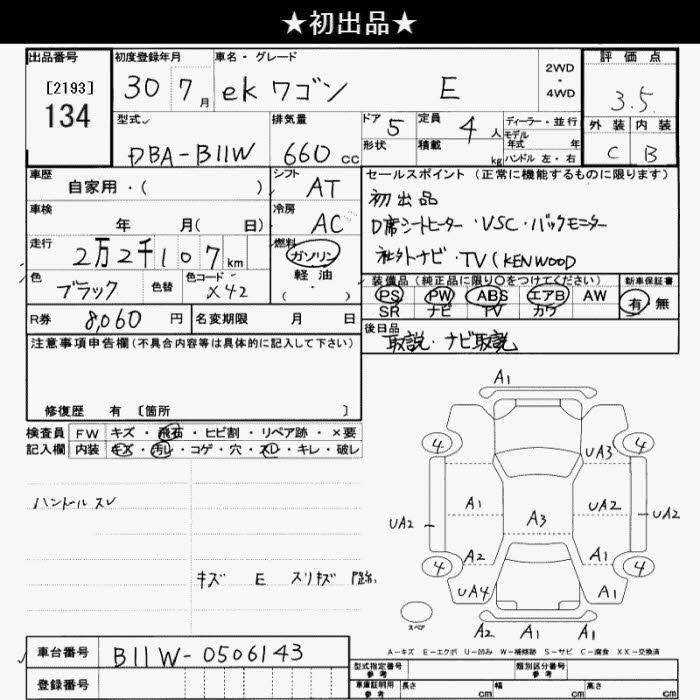 ★初出品★
出品番号 初度登録年月 車名・グレード 評価点
[2193] 30 7月 ekワゴン E 2WD・4WD 3.5
134 型式 排気量 ドア 5 定員 4人 ディーラー・並行 外装 内装
モデル年式 年
DBA-B11W 660cc 形状 積載 kg ハンドル 左・右 C B
車歴 シフト AT セールスポイント(正常に機能するものに限ります)
自家用・( ) 初出品
車検 冷房 AC D席シートヒーター・VSC・バックモニター
年 月( 日)
走行 2万2千107km 燃料 ガソリン 社外ナビ・TV(KENWOOD
軽油
( )
色 ブラック 色替 色コード X42 装備品(純正品に限り○をつけてください) 新車保証書
PS PW ABS エアB AW 有 無
SR ナビ TV カワ
R券 8,060円 名変期限 月 日 後日品
取説・ナビ取説
注意事項申告欄(不具合内容等は具体的に記入して下さい)
修復歴 有 [箇所 ]
検査員 FW キズ・飛石・ヒビ割・リペア跡・×要
記入欄 内装 キズ・汚レ・コゲ・穴・スレ・キレ・破レ
ハンドル スレ
キズ E スリキズ
A1
4 4
UA3
A1 UA2
UA2 A3 UA2
A2 A1
4 4
UA4 A1
スペア
A2 A1 A1
A-キズ E-エクボ U-凹み W-補修跡 S-サビ C-腐食 XX-交換済
車台番号 B11W-0506143
登録番号
型式指定番号 参考 類別区分番号 参考
車庫証明用 参考 長さ cm 幅 cm 高さ cm